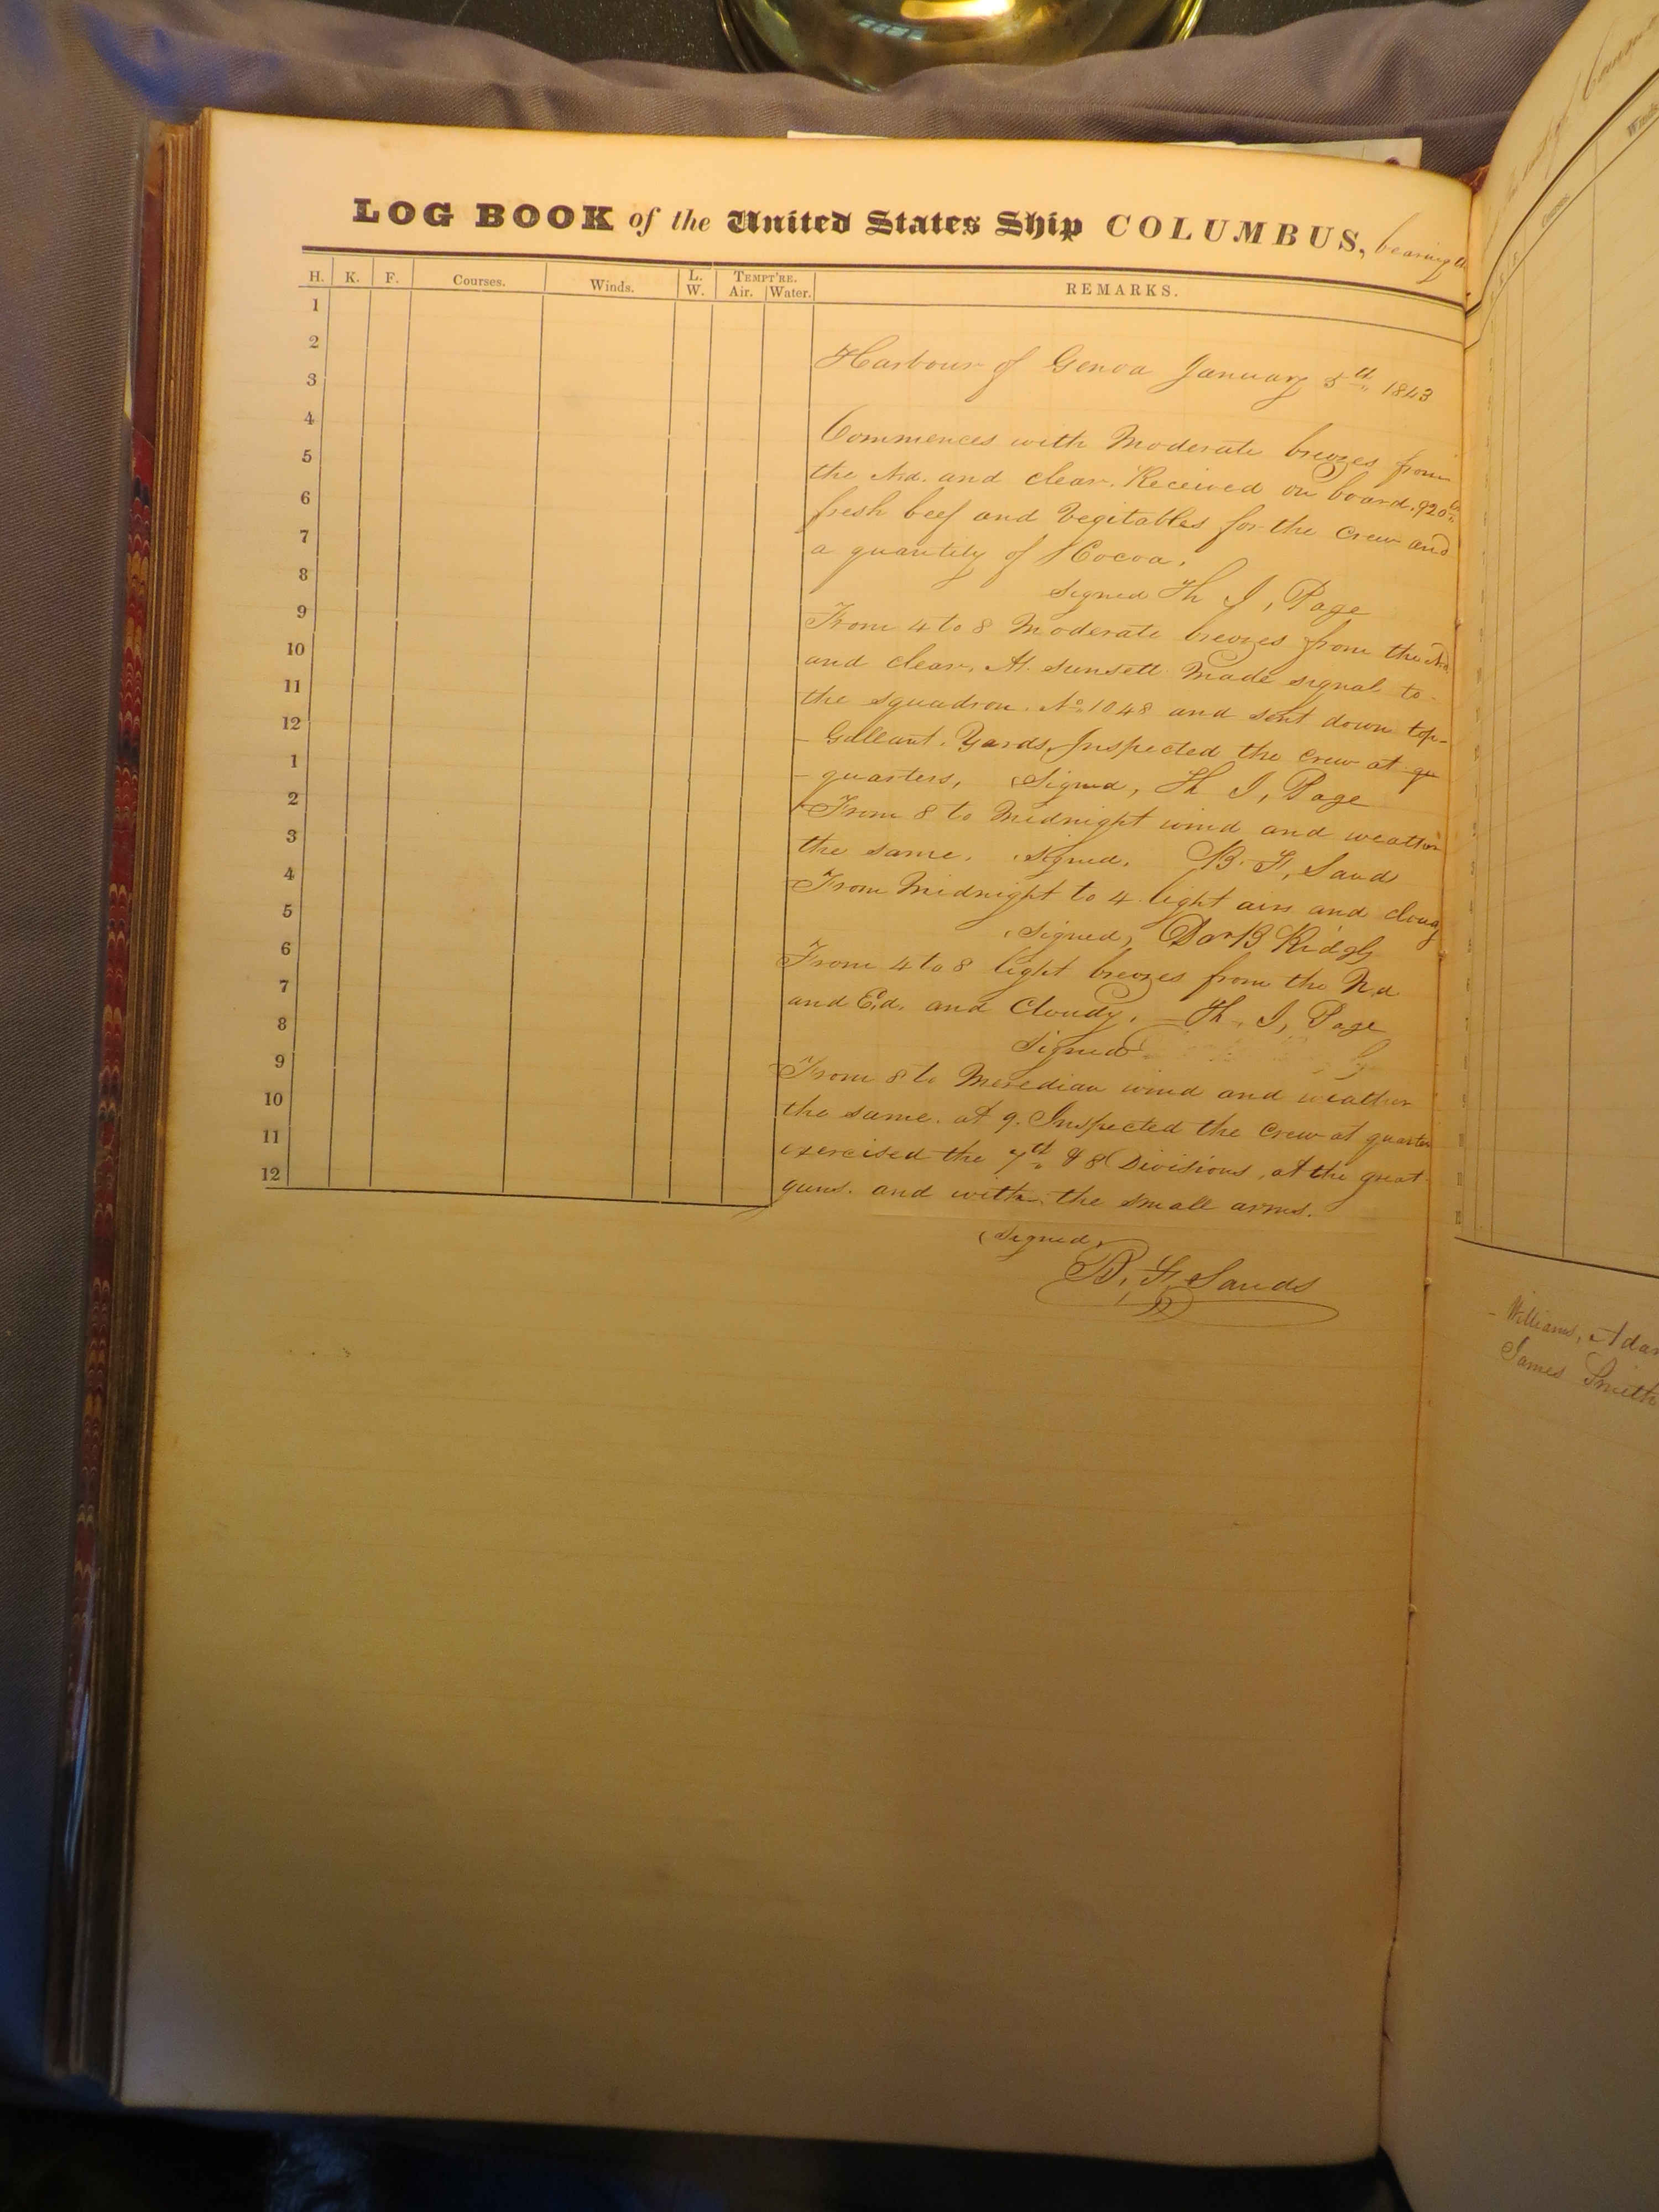 LOG BOOK of the United States Ship COLUMBUS, bearing
H. K. F. Courses. Winds. L. W. TEMPT'RE. Air. Water. REMARKS.
1
2
3
4
5
6
7
8
9
10
11
12
1
2
3
4
5
6
7
8
9
10
11
12
Harbour of Genoa January 5th 1843
Commences with Moderate breezes from
the Nd. and clear. Received on board. 920 lbs
fresh beef and Vegitables for the Crew and
a quantity of Cocoa.
Signed Th J, Page
From 4 to 8 Moderate breezes from the Nd.
and clear, At sunsett Made signal to
the squadron. No 1048 and sent down top-
- Gallant. Yards, Inspected the crew at qu
- quarters, Signed, Th J, Page
From 8 to Midnight wind and weather
the same. Signed. B. F, Sands
From Midnight to 4 light airs and cloudy
Signed,
From 4 to 8 light breezes from the N.d
and E.d. and Cloudy. Th. J, Page
Signed
From 8 to Meredian wind and weather
the same. at 9. Inspected the Crew at quarters
exercised the 7th & 8 Divisions, at the great
guns. and with the small arms.
Signed,
B, F, Sands
Courses.
Winds
- Williams, Adam
James Smith